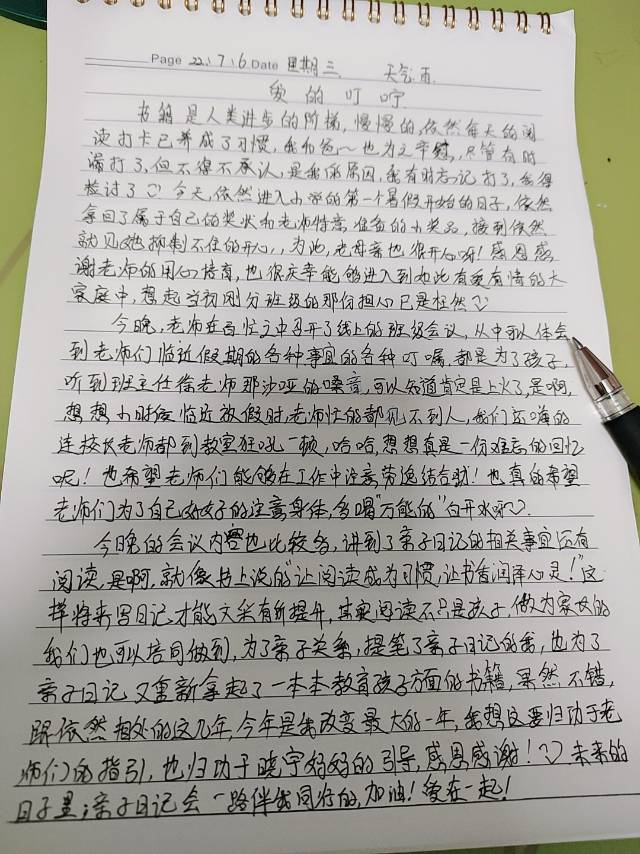 Page 22.7.6 Date 星期三 天气:雨
爱的叮咛
书籍是人类进步的阶梯,慢慢的,依然每天的阅
读打卡已养成了习惯,我和爸~也为之幸慰,尽管有时
漏打了,但不得不承认,是我的原因,我有时忘记打了,我得
检讨了 今天,依然进入小学的第一个暑假开始的日子,依然
拿回了属于自己的奖状和老师特意准备的小奖品,接到依然
就见她抑制不住的开心,,为此,老母亲也很开心呀!感恩感
谢老师的用心培育,也很庆幸能够进入到如此有爱有情的大
家庭中,想起当初刚分班级的那份担心已是枉然
今晚,老师在百忙之中召开了线上的班级会议,从中可以体会
到老师们临近假期的各种事宜的各种叮嘱,都是为了孩子,
听到班主任徐老师那沙哑的嗓音,可以知道肯定是上火了,是啊,
想想小时侯临近放假时,老师忙的都见不到人,我们还嗨的
连校长老师都到教室狂吼一顿,哈哈,想想真是一份难忘的回忆
呢!也希望老师们能够在工作中注意劳逸结合哟!也真的希望
老师们为了自己好好的注意身体,多喝"万能的"白开水呀
今晚的会议内容也比较多,讲到了亲子日记的相关事宜还有
阅读,是啊,就像书上说的"让阅读成为习惯,让书香润泽心灵!"这
样将来写日记才能文采有所提升,其实阅读不只是孩子,做为家长的
我们也可以陪同做到,为了亲子关系,提笔了亲子日记的我,也为了
亲子日记又重新拿起了一本本教育孩子方面的书籍,果然不错,
跟依然相处的这几年,今年是我改变最大的一年,我想这要归功于老
师们的指引,也归功于晓宇妈妈的引导,感恩感谢! 未来的
日子里,亲子日记会一路伴我同行的,加油!爱在一起!